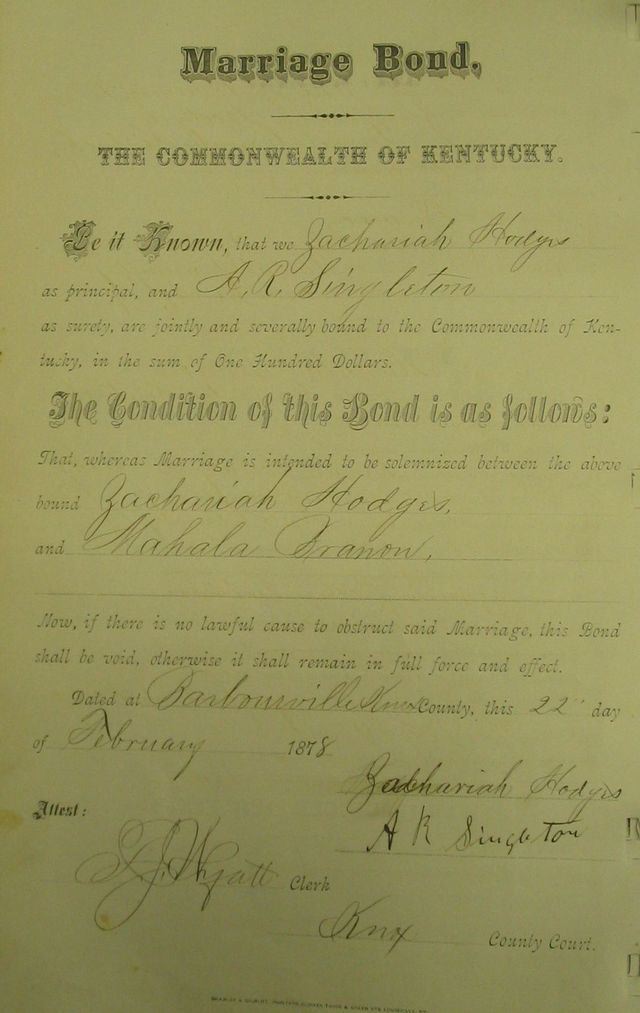 Marriage Bond.
THE COMMONWEALTH OF KENTUCKY.
Be it Known, that we Zachariah Hodges
as principal, and A. R. Singleton
as surety, are jointly and severally bound to the Commonwealth of Ken-
tucky, in the sum of One Hundred Dollars.
The Condition of this Bond is as follows:
That, whereas Marriage is intended to be solemnized between the above
bound Zachariah Hodges,
and Mahala Branon,
Now, if there is no lawful cause to obstruct said Marriage, this Bond
shall be void, otherwise it shall remain in full force and effect.
Dated at Barbourville Knox County, this 22" day
of February 1878
Zachariah Hodges
Attest:
A R Singleton
Wyatt Clerk
Knox County Court.